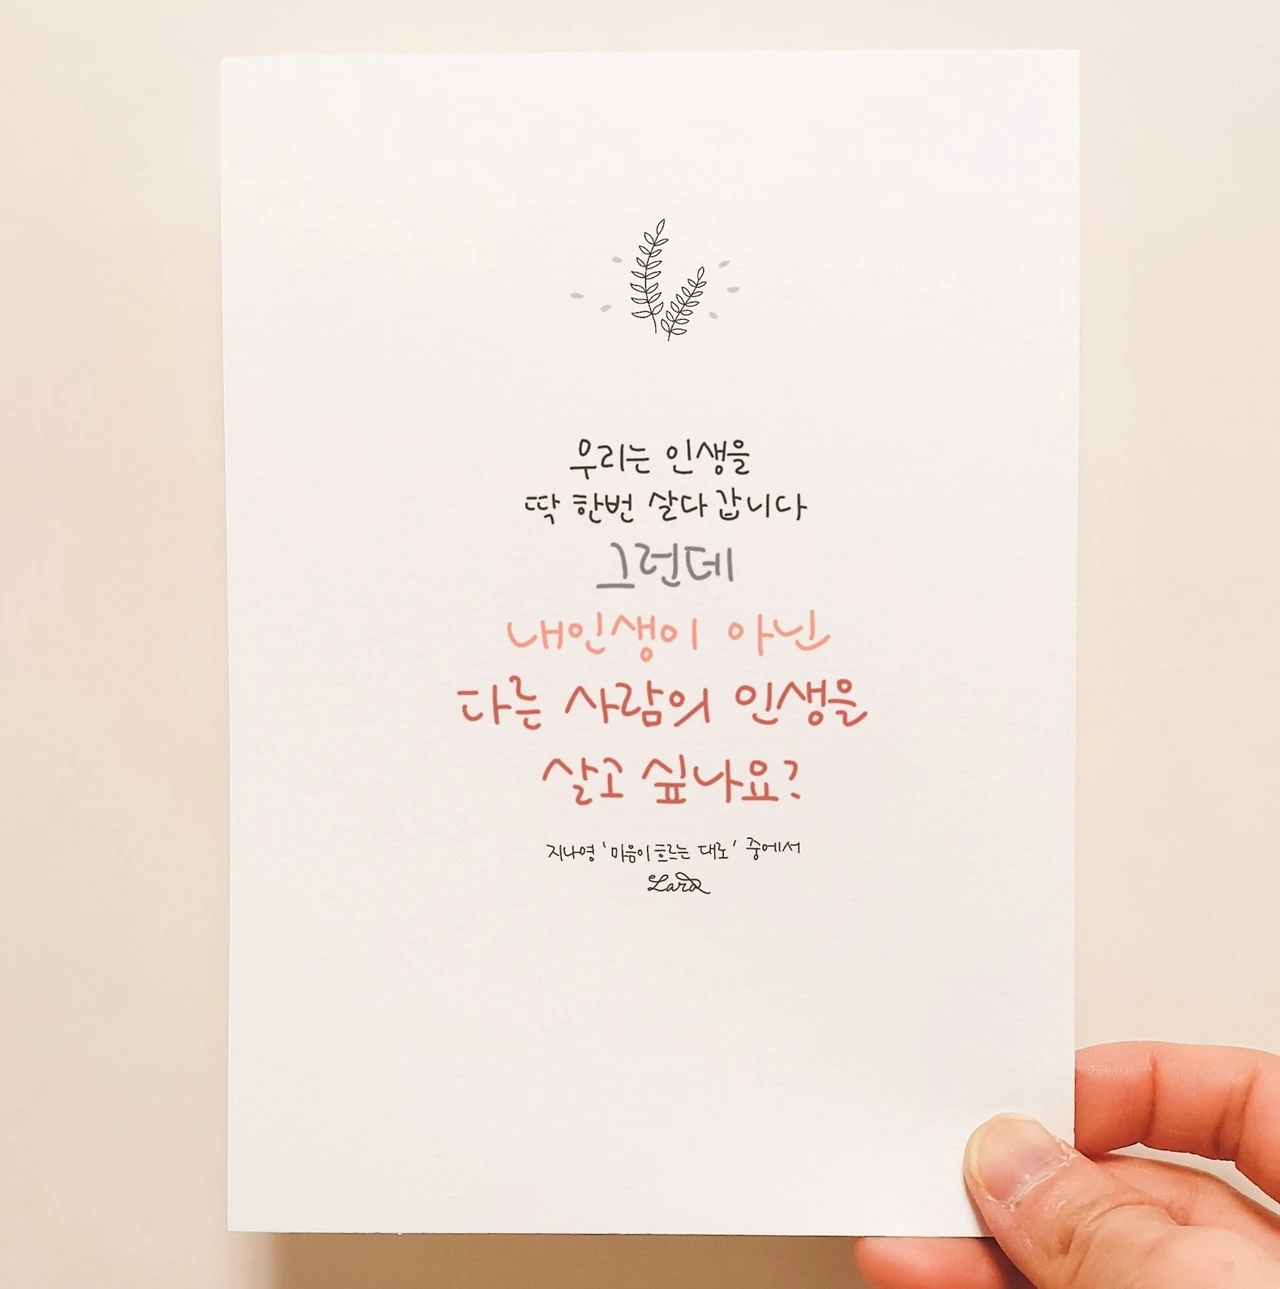 우리는 인생을
딱 한번 살다 갑니다
그런데
내인생이 아닌
다른 사람의 인생을
살고 싶나요?
지나영 '마음이 흐르는 대로' 중에서
Lara